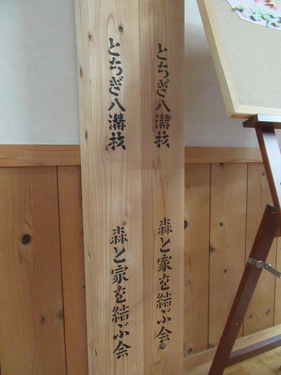 とちぎ八溝材
森と家を結ぶ会
とちぎ八溝材
森と家を結ぶ会